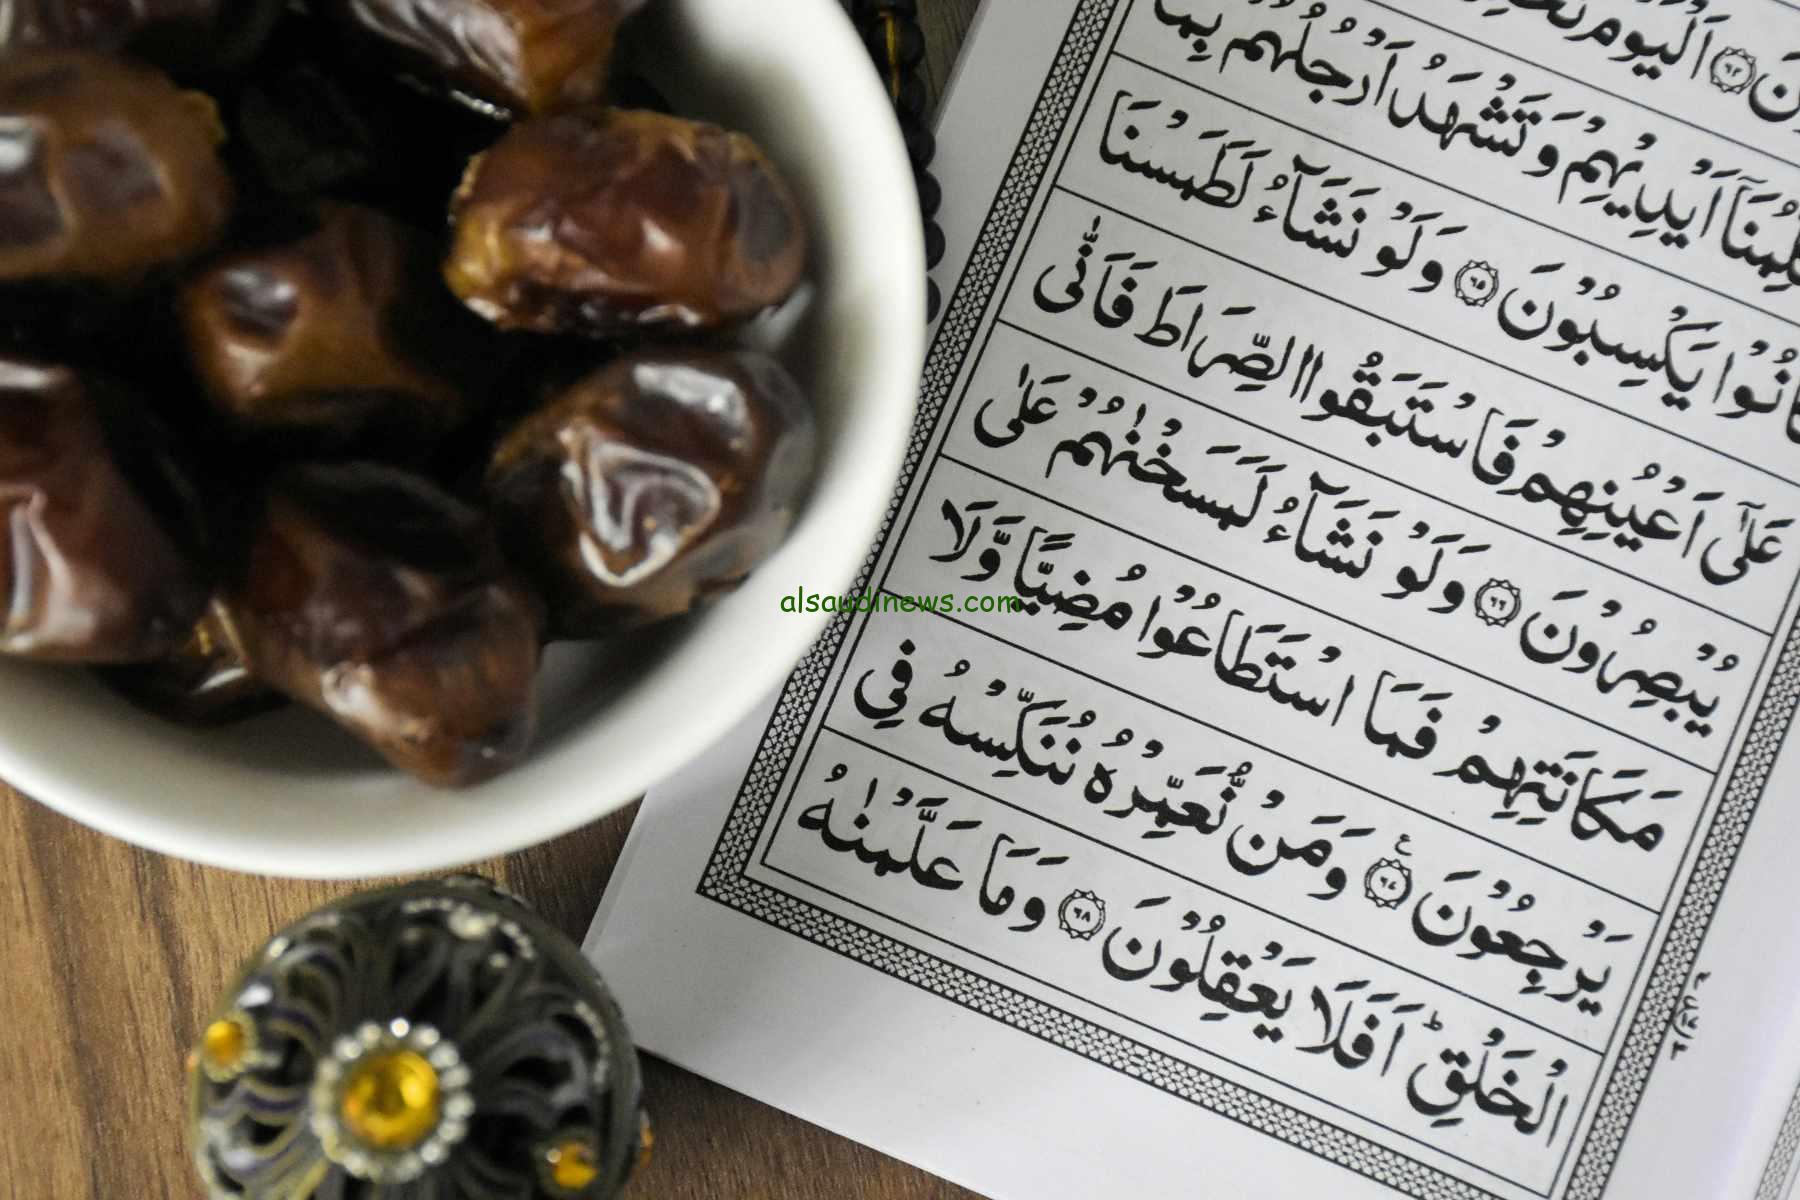 نَ ۝٦٤ اَلْيَوْمَ
اَيْدِيْهِمْ وَتَشْهَدُ اَرْجُلُهُمْ بِمَا
كَانُوْا يَكْسِبُوْنَ ۝٦٥ وَلَوْ نَشَآءُ لَطَمَسْنَا
عَلٰٓى اَعْيُنِهِمْ فَاسْتَبَقُوا الصِّرَاطَ فَاَنّٰى
يُبْصِرُوْنَ ۝٦٦ وَلَوْ نَشَآءُ لَمَسَخْنٰهُمْ عَلٰى
مَكَانَتِهِمْ فَمَا اسْتَطَاعُوْا مُضِيًّا وَّلَا
يَرْجِعُوْنَ ۝٦٧ ع وَمَنْ نُّعَمِّرْهُ نُنَكِّسْهُ فِى
الْخَلْقِ ؕ اَفَلَا يَعْقِلُوْنَ ۝٦٨ وَمَا عَلَّمْنٰهُ
alsaudinews.com